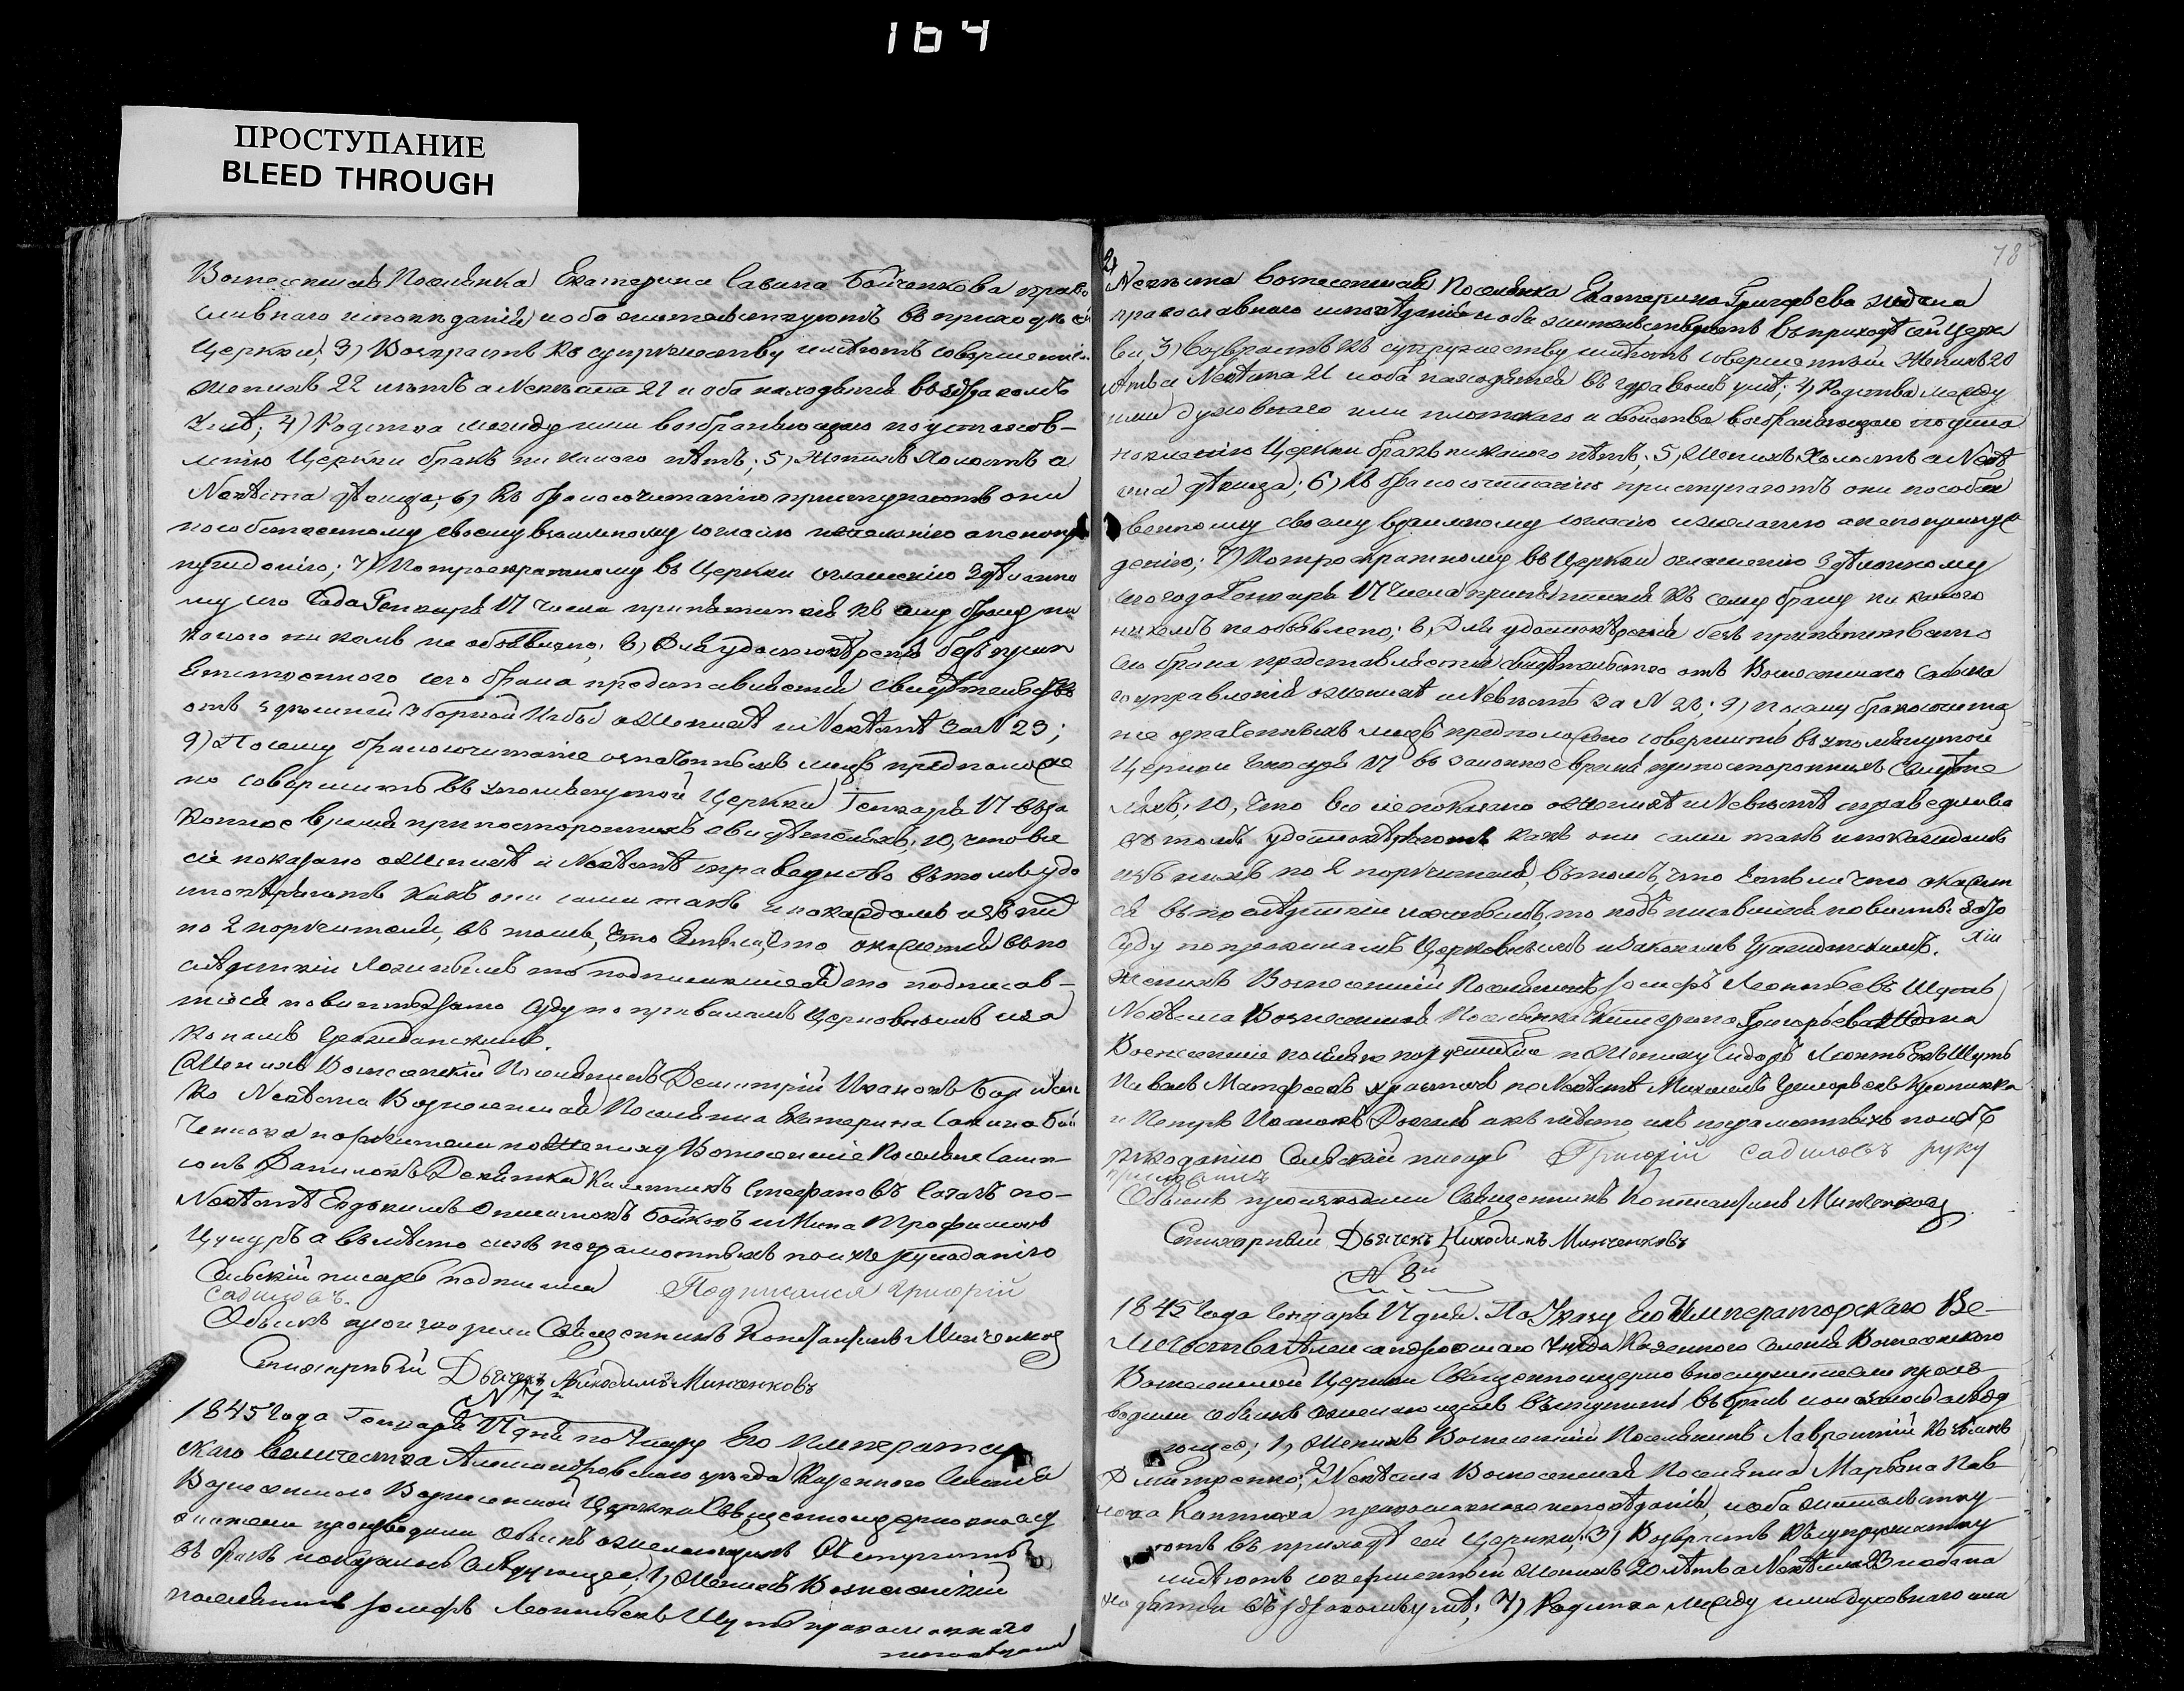 164
ПРОСТУПАНИЕ
BLEED THROUGH
Вознесенская Поселянка Екатерина Савина Бойченкова право
славнаго исповѣданія и оба жительствуютъ въ приходѣ сей
Церкви; 3) Возрастъ къ супружеству имѣютъ совершенный
женихъ 22 лѣтъ а Невѣста 21 и оба находятся въ здравомъ
Умѣ; 4) Родства между ими возбраняющаго по установ-
лѣнію Церкви бракъ никакого нѣтъ; 5) Женихъ Холостъ а
Невѣста дѣвица; 6) Къ бракосочитанію приступаютъ они
по собственному своему взаимному согласію и желанію а не по при
нужденію; 7) По троекратному въ Церкви оглашенію Здѣланно
му сего Года Генваря 17 числа препятствія къ сему браку ни
какого ни кемъ не объявлено; 8) Для удостовѣренія безпреп
ятственного сего брака представляется свидѣтельство
отъ здешней Зборной Избы о Женихѣ и Невѣстѣ За N 23;
9) Посему бракосочитаніе означенныхъ лицъ предположе
но совершить въ упомянутой Церкви Генваря 17 въ за
конное время при постороннихъ свидѣтеляхъ; 10, что все
сіе показано о Женихѣ и Невѣстѣ справедливо въ томъ удо
стовѣряютъ какъ они сами такъ и по каждомъ изъ них
по 2 поручителя, въ томъ, что Естьли, что окажется въ по
слѣдствіи ложнымъ то подписавшіеся то подписав-
шіеся повинны за то Суду по правиламъ Церковнымъ и за
конамъ Гражданскимъ.
Женихъ Вознесенскій Поселянинъ Демитрій Ивановъ
ко Невѣста Вознесенская Поселянка Екатерина Савина Бой
ченкова поручители по Жениху Вознесенскіе Поселяне
Даниловъ Стефановъ по
Невѣстѣ Евдокимъ Бойковъ и Трофимовъ
а вмѣсто ихъ неграмотныхъ по ихъ рукоданію
Сельскій писарь подписался Подписался Григорій
Садиловъ.
Обыскъ производили Священникъ Константинъ Минченковъ
Стихарный Дьячекъ Никодимъ Минченковъ
N 7й
1845 Года Генваря 17 дня по Указу Его Императорс
скаго Величества Александровскаго уѣзда Казенного Селенія
Вознесенского Вознесенской Церкви Священноцерковнослу
жители производили обыскъ желающимъ Вступить
въ бракъ показалось слѣдующее; 1, Женихъ Вознесенскій
поселянинъ Іосифъ Леонтьевъ Шутъ православнаго
исповѣданія
78
2,
Невѣста Вознесенская Поселянка Екатерина Григорьева
православного исповѣданія и оба жительствуютъ въ приходѣ сей Церк
ви, 3) Возврастъ къ супружеству имѣютъ совершенный Женихъ 20
лѣтъ а Невѣста 21 и оба находятся въ здравомъ умѣ; 4) Родства между
ими духовнаго или плотскаго и свойства возбраняющаго по уста
новленію Церкви бракъ никакого нѣтъ; 5, Женихъ Холостъ а Невѣ
ста дѣвица; 6) Къ бракосочитанію приступаютъ они по собст
венному своему взаимному согласію и желанію а не по принуж
денію; 7) По троекратному въ Церкви оглашенію Здѣланному
сего года Генваря 17 числа препятствія къ сему браку ни какого
ни кемъ не объявлено; 8, Для удостовѣренія безъ препятственно
сего брака представляется свидѣтельство отъ Вознесенского Сельска
го управленія о Женихѣ и Невѣстѣ За N 23; 9) Посему бракосочита
ніе означенныхъ лицъ предположено совершить въ упомянутой
Церкви Генваря 17 въ законное время при постороннихъ Свидѣте
ляхъ; 10, что все сіе показано о Женихѣ и Невѣстѣ справедливо
въ томъ удостовѣряютъ какъ они сами такъ и по каждомъ
изъ нихъ по 2 поручителя, въ томъ, что Естьли что окажет
ся въ послѣдствіи ложнымъ, то подъписавшіеся повинны За то
Суду по правиламъ Церковнымъ и Законамъ Гражданскимъ.
Женихъ Вознесенскій Поселянинъ Іосифъ Леонтьевъ Шутъ
Невѣста Вознесенская Поселянка Екатерина Григорьева
Вознесенскіе поселяне поручители по Жениху Сидоръ Леонтьевъ Шутъ
Матфеевъ по Невѣстѣ Михаилъ Григорьевъ
и Петръ Ивановъ а въ мѣсто ихъ неграмотныхъ по ихъ
рукоданію Сельскій писарь Григорій Садиловъ руку
приложилъ
Обыскъ производили Священникъ Константинъ Минченковъ
Стихарный Дьячекъ Никодимъ Минченковъ
N 8й
1845 Года Генваря 17 дня. По Указу Его Императорскаго Ве-
личества Александровскаго Уѣзда Казенного Селенія Вознесенского
Вознесенской Церкви Священноцерковнослужители произ
водили обыскъ желающимъ Вступить въ бракъ показалось слѣд
ующее; 1, Женихъ Вознесенскій Поселянинъ Лаврентій
Дмитренко; 2, Невѣста Вознесенская Поселянка Марфа Пав
лова православного исповѣданія, и оба жительству
ютъ въ приходѣ сей Церкви; 3) Возврастъ къ супружеству
имѣютъ совершенный Женихъ 20 лѣтъ а Невѣста 23 и оба на
ходятся въ здравомъ умѣ; 4) Родства между ими духовнаго или